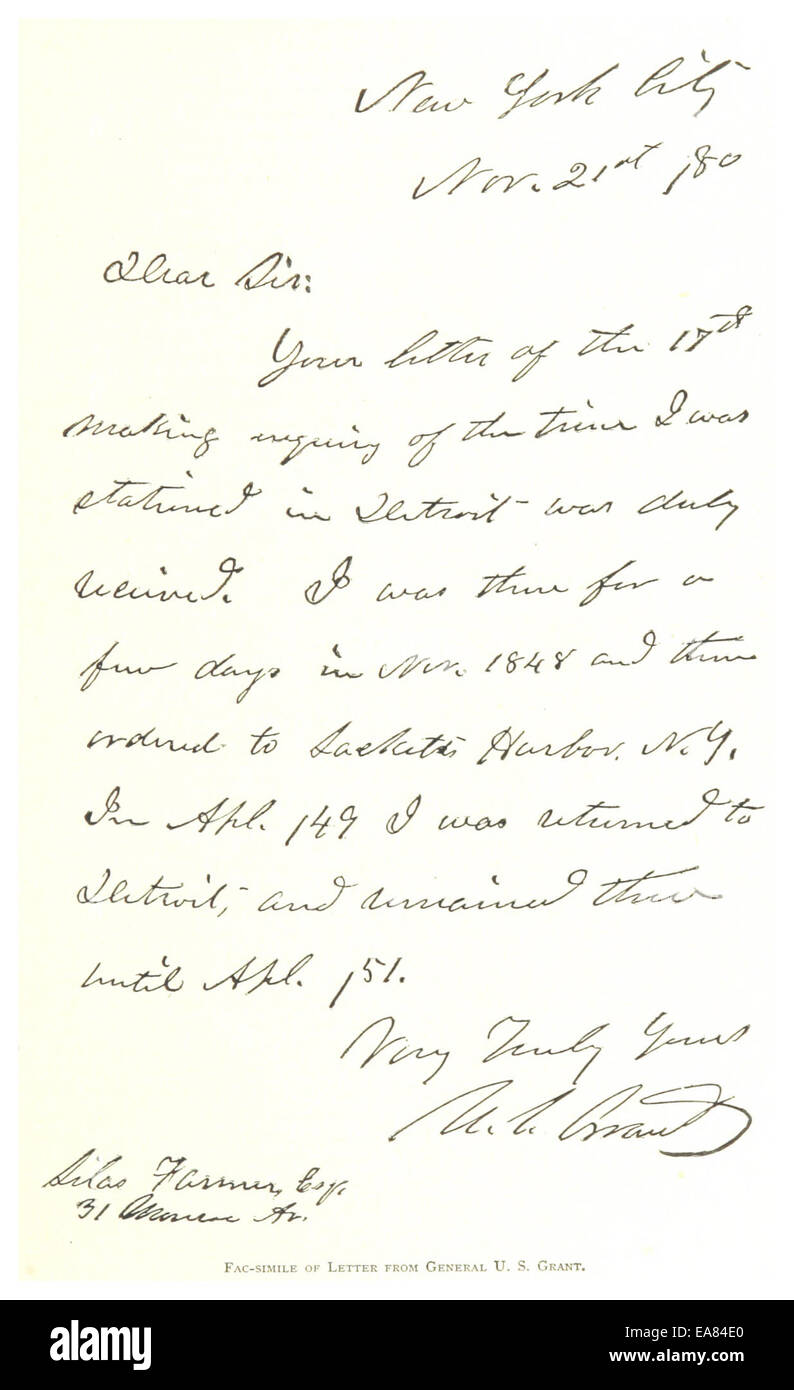 New York City
Nov. 21st /80
Dear Sir:
Your letter of the 17th
making inquiry of the time I was
stationed in Detroit was duly
received. I was there for a
few days in Nov. 1848 and then
ordered to Sackets Harbor. N.Y.
In Apl. /49 I was returned to
Detroit, and remained there
until Apl. /51.
Very Truly Yours
U. S. Grant
Silas Farmer, Esq.
31 Monroe Av.
FAC-SIMILE OF LETTER FROM GENERAL U. S. GRANT.
alamy
a
alamy stock photo
EA84E0
www.alamy.com